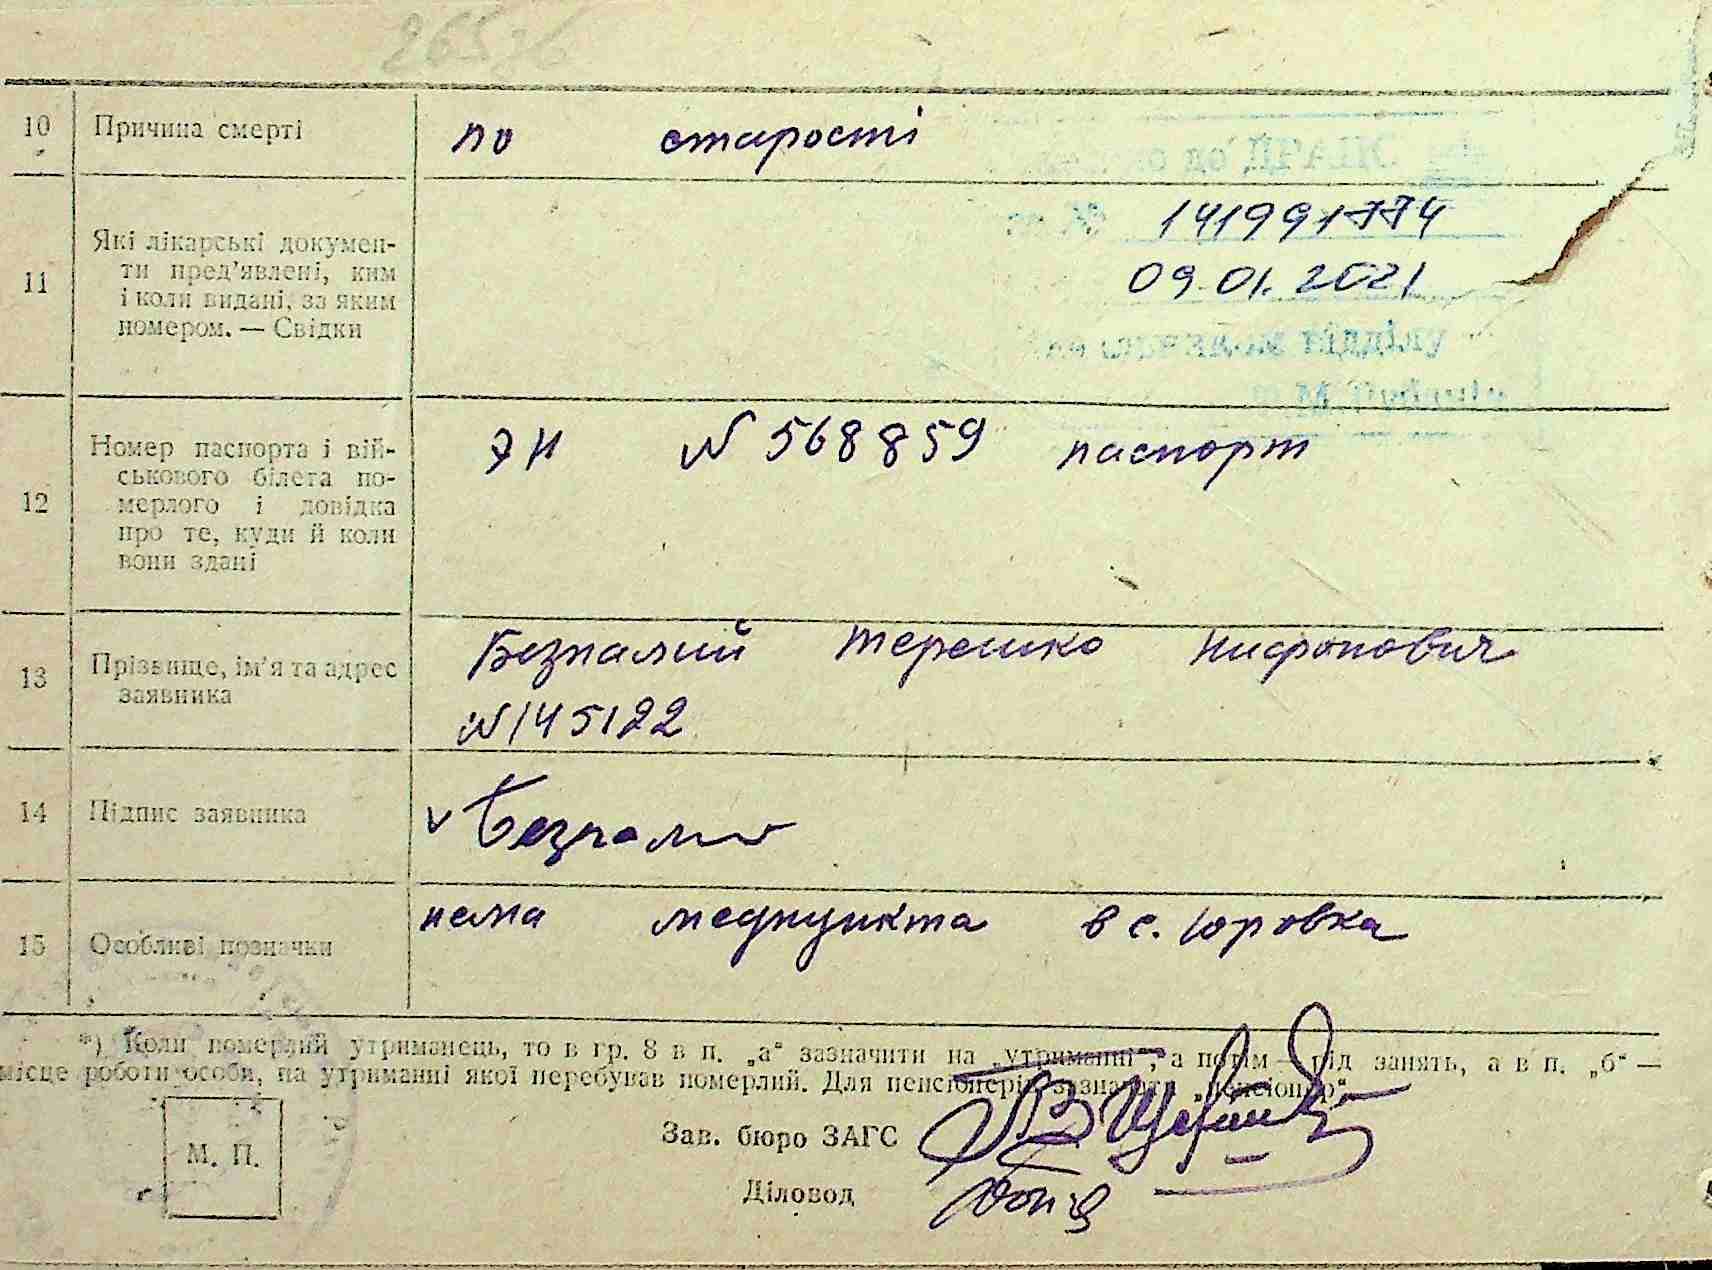 265
10 Причина смерті по старості
до ДРАЦС
за № 141991774
09.01.2021
11 Які лікарські докумен-
ти пред'явлені, ким
і коли видані, за яким
номером. — Свідки
відділу
12 Номер паспорта і вій-
ськового білета по-
мерлого і довідка
про те, куди й коли
вони здані
ЭН № 568859 паспорт
13 Прізвище, ім'я та адрес
заявника
Безпалий Терешко Нифонович
№ 145122
14 Підпис заявника
v Безпалий
15 Особливі позначки
нема медпункта в с. Юровка
*) Коли померлий утриманець, то в гр. 8 в п. „а“ зазначити на „утриманні“, а потім — рід занять, а в п. „б“ —
місце роботи особи, на утриманні якої перебував померлий. Для пенсіонерів зазначати „пенсіонер“.
Зав. бюро ЗАГС
М. П.
Діловод